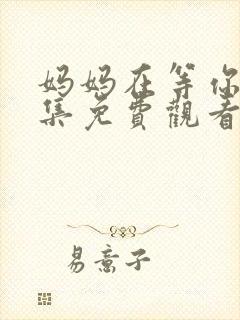 妈妈在等你
集免費觀看
易意子